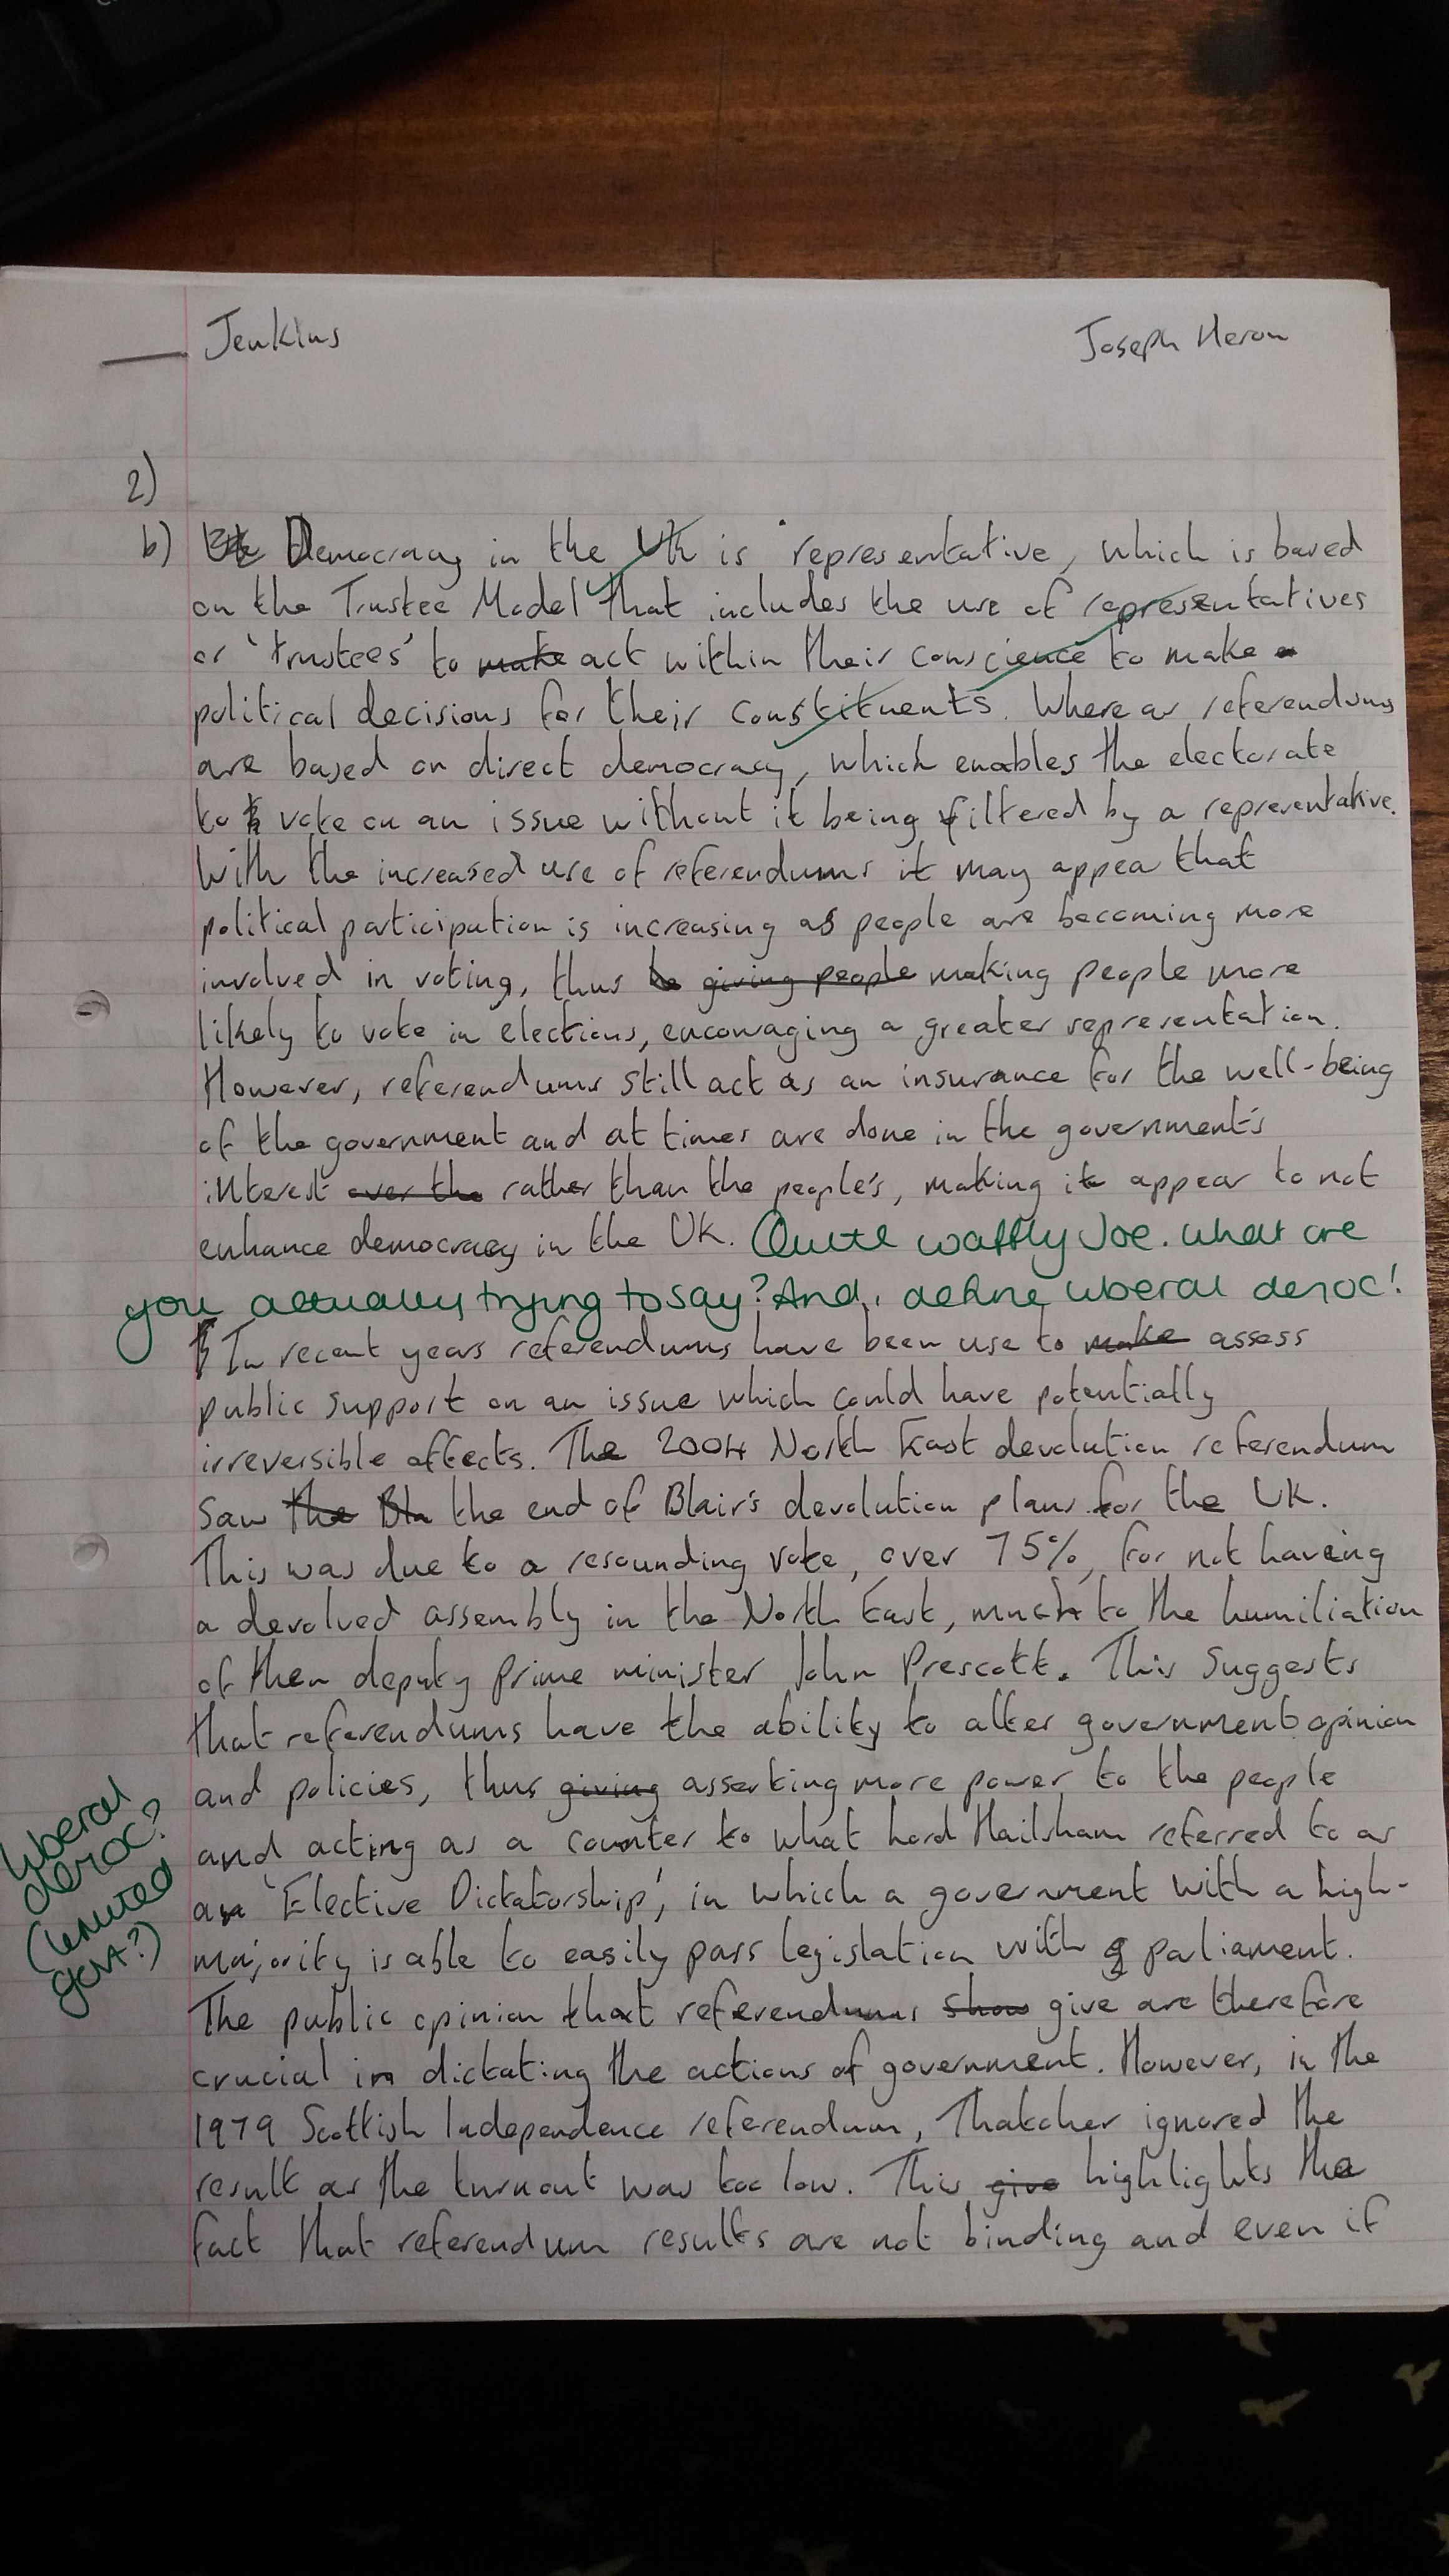 Jenkins
Joseph Heron
2)
b) Democracy in the UK is representative, which is based
on the Trustee Model that includes the use of representatives
or 'trustees' to make act within their conscience to make a
political decisions for their constituents. Whereas referendums
are based on direct democracy, which enables the electorate
to vote on an issue without it being filtered by a representative.
With the increased use of referendums it may appear that
political participation is increasing as people are becoming more
involved in voting, thus giving people making people more
likely to vote in elections, encouraging a greater representation.
However, referendums still act as an insurance for the well-being
of the government and at times are done in the government's
interest over the rather than the people's, making it appear to not
enhance democracy in the UK. Quite waffly Joe. what are
you actually trying to say? And, define liberal democ!
In recent years referendums have been use to make assess
public support on an issue which could have potentially
irreversible affects. The 2004 North East devolution referendum
saw the Bla the end of Blair's devolution plans for the UK.
This was due to a resounding vote, over 75%, for not having
a devolved assembly in the North East, much to the humiliation
of then deputy prime minister John Prescott. This suggests
that referendums have the ability to alter government opinion
and policies, thus giving asserting more power to the people
and acting as a counter to what Lord Hailsham referred to as
an 'Elective Dictatorship', in which a government with a high-
majority is able to easily pass legislation with parliament.
liberal
democ?
(limited
govt?)
The public opinion that referendums show give are therefore
crucial in dictating the actions of government. However, in the
1979 Scottish Independence referendum, Thatcher ignored the
result as the turnout was too low. This give highlights the
fact that referendum results are not binding and even if